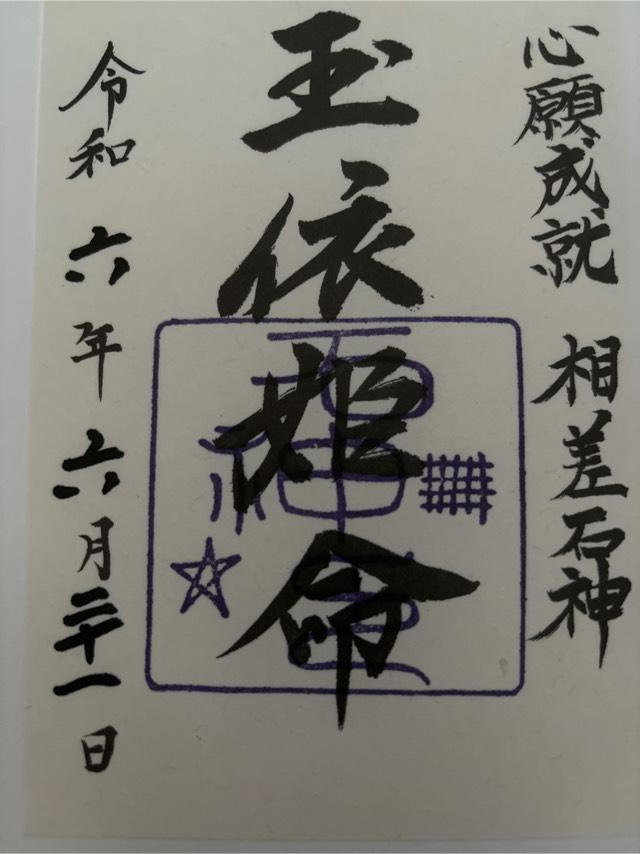 心願成就 相差石神
玉依姫命
令和六年六月二十一日